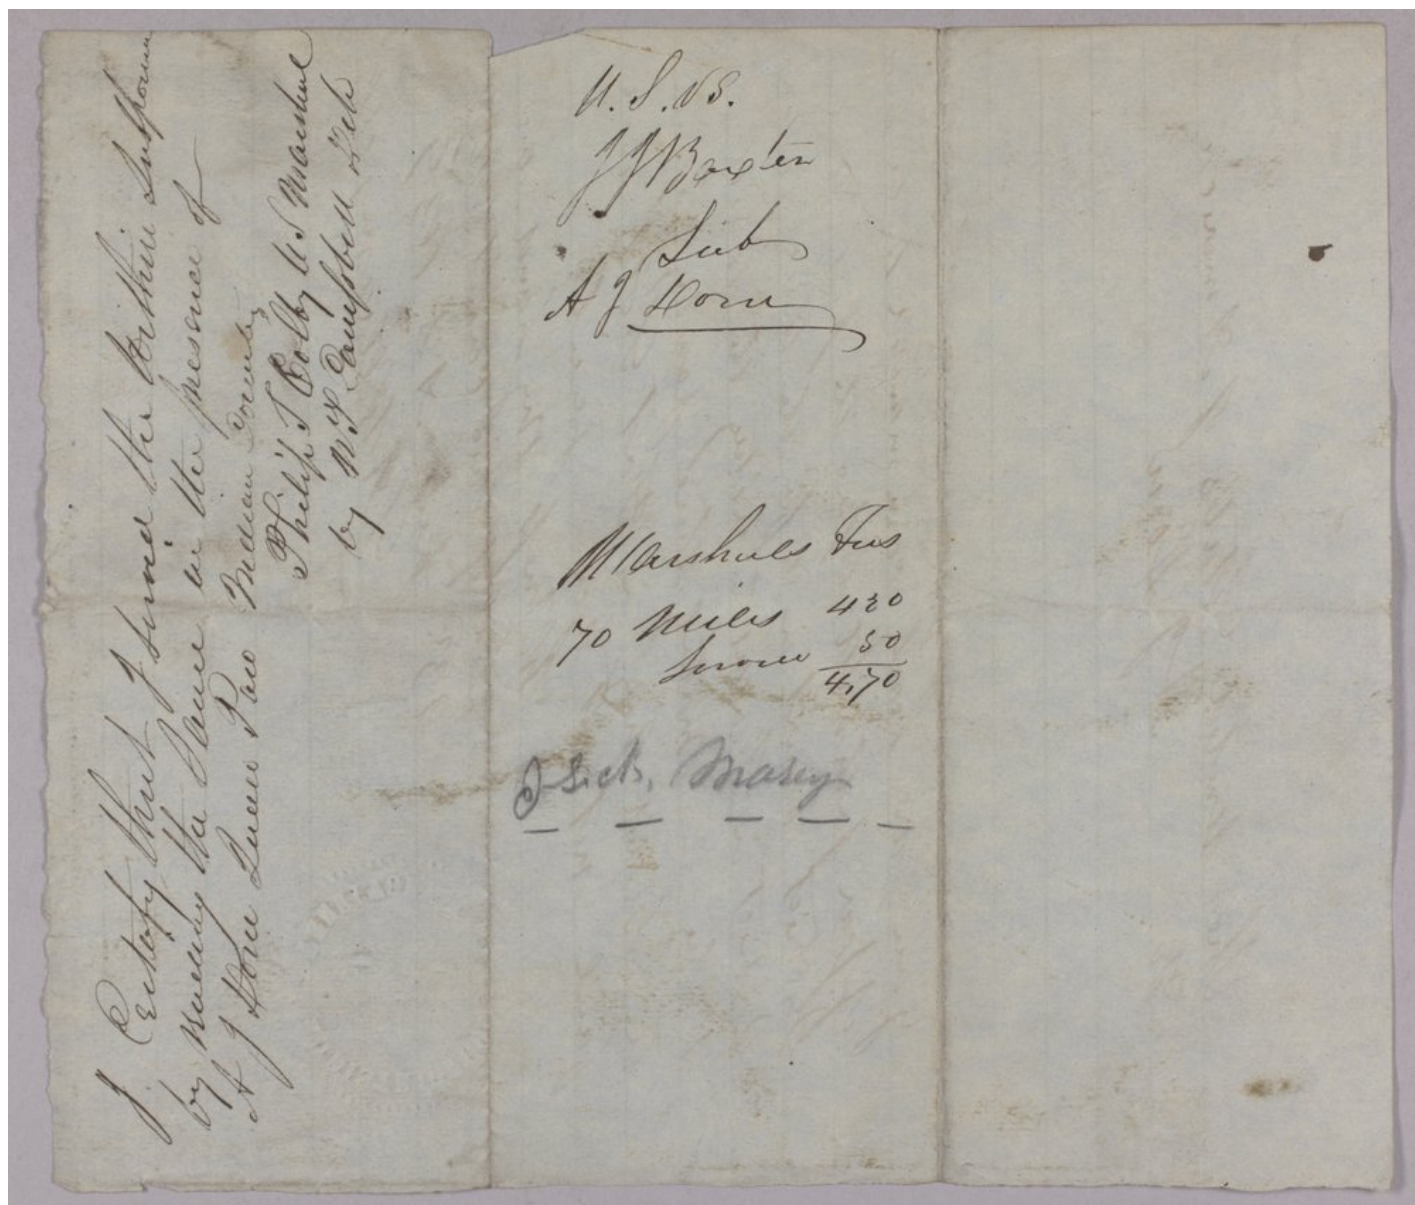 I Certify that I served the within Subpoena
by reading the same in the presence of
A J Dorn June
Indian Country
Philip T Colby U S Marshal
by W F Campbell Feb
U. S. vs.
J J Baxter
Sub
A J Dorn
Marshals Fees
70 Miles 420
Serving 50
4,70